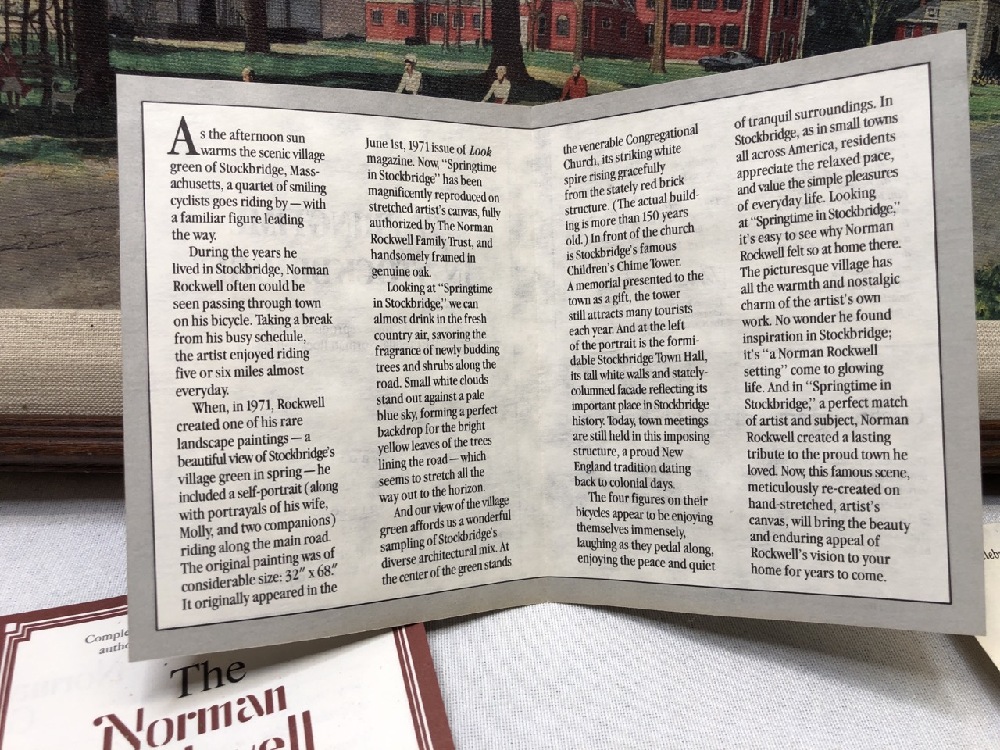 As the afternoon sun
warms the scenic village
green of Stockbridge, Mass-
achusetts, a quartet of smiling
cyclists goes riding by — with
a familiar figure leading
the way.
During the years he
lived in Stockbridge, Norman
Rockwell often could be
seen passing through town
on his bicycle. Taking a break
from his busy schedule,
the artist enjoyed riding
five or six miles almost
everyday.
When, in 1971, Rockwell
created one of his rare
landscape paintings — a
beautiful view of Stockbridge's
village green in spring — he
included a self-portrait (along
with portrayals of his wife,
Molly, and two companions)
riding along the main road.
The original painting was of
considerable size: 32" x 68."
It originally appeared in the
June 1st, 1971 issue of Look
magazine. Now, "Springtime
in Stockbridge" has been
magnificently reproduced on
stretched artist's canvas, fully
authorized by The Norman
Rockwell Family Trust, and
handsomely framed in
genuine oak.
Looking at "Springtime
in Stockbridge," we can
almost drink in the fresh
country air, savoring the
fragrance of newly budding
trees and shrubs along the
road. Small white clouds
stand out against a pale
blue sky, forming a perfect
backdrop for the bright
yellow leaves of the trees
lining the road — which
seems to stretch all the
way out to the horizon.
And our view of the village
green affords us a wonderful
sampling of Stockbridge's
diverse architectural mix. At
the center of the green stands
the venerable Congregational
Church, its striking white
spire rising gracefully
from the stately red brick
structure. (The actual build-
ing is more than 150 years
old.) In front of the church
is Stockbridge's famous
Children's Chime Tower.
A memorial presented to the
town as a gift, the tower
still attracts many tourists
each year. And at the left
of the portrait is the formi-
dable Stockbridge Town Hall,
its tall white walls and stately-
columned facade reflecting its
important place in Stockbridge
history. Today, town meetings
are still held in this imposing
structure, a proud New
England tradition dating
back to colonial days.
The four figures on their
bicycles appear to be enjoying
themselves immensely,
laughing as they pedal along,
enjoying the peace and quiet
of tranquil surroundings. In
Stockbridge, as in small towns
all across America, residents
appreciate the relaxed pace,
and value the simple pleasures
of everyday life. Looking
at "Springtime in Stockbridge,"
it's easy to see why Norman
Rockwell felt so at home there.
The picturesque village has
all the warmth and nostalgic
charm of the artist's own
work. No wonder he found
inspiration in Stockbridge;
it's "a Norman Rockwell
setting" come to glowing
life. And in "Springtime in
Stockbridge," a perfect match
of artist and subject, Norman
Rockwell created a lasting
tribute to the proud town he
loved. Now, this famous scene,
meticulously re-created on
hand-stretched, artist's
canvas, will bring the beauty
and enduring appeal of
Rockwell's vision to your
home for years to come.
The
Norman